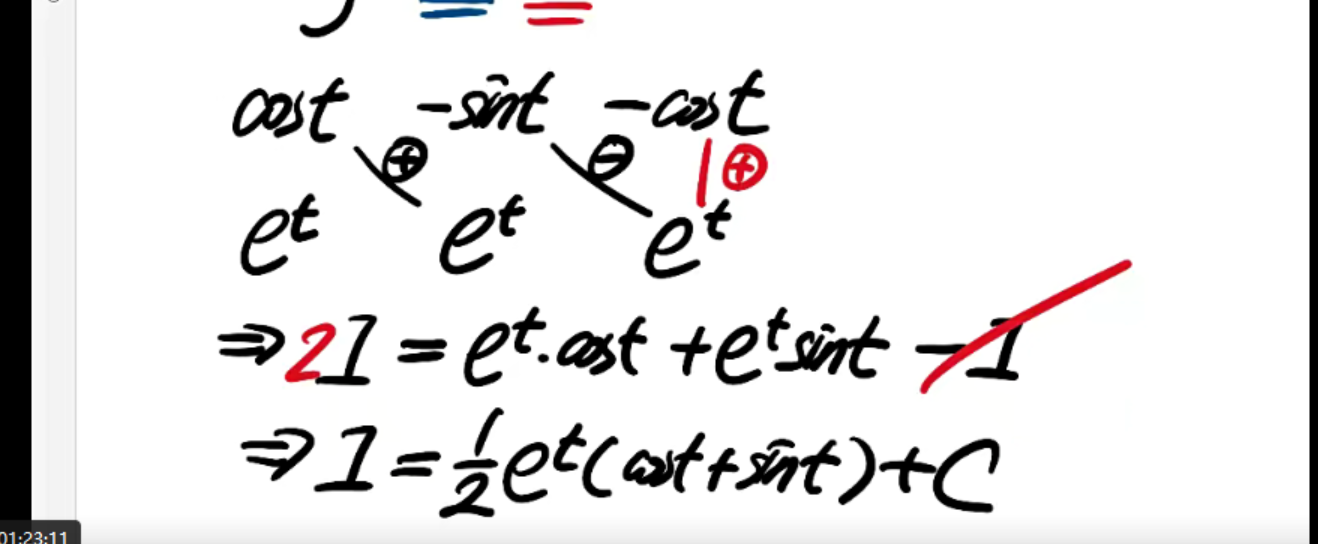 cost -sint -cost
⊕ ⊖ |⊕
e^t e^t e^t
⇒ 2I = e^t·cost + e^t sint - I
⇒ I = 1/2 e^t(cost + sint) + C
01:23:11